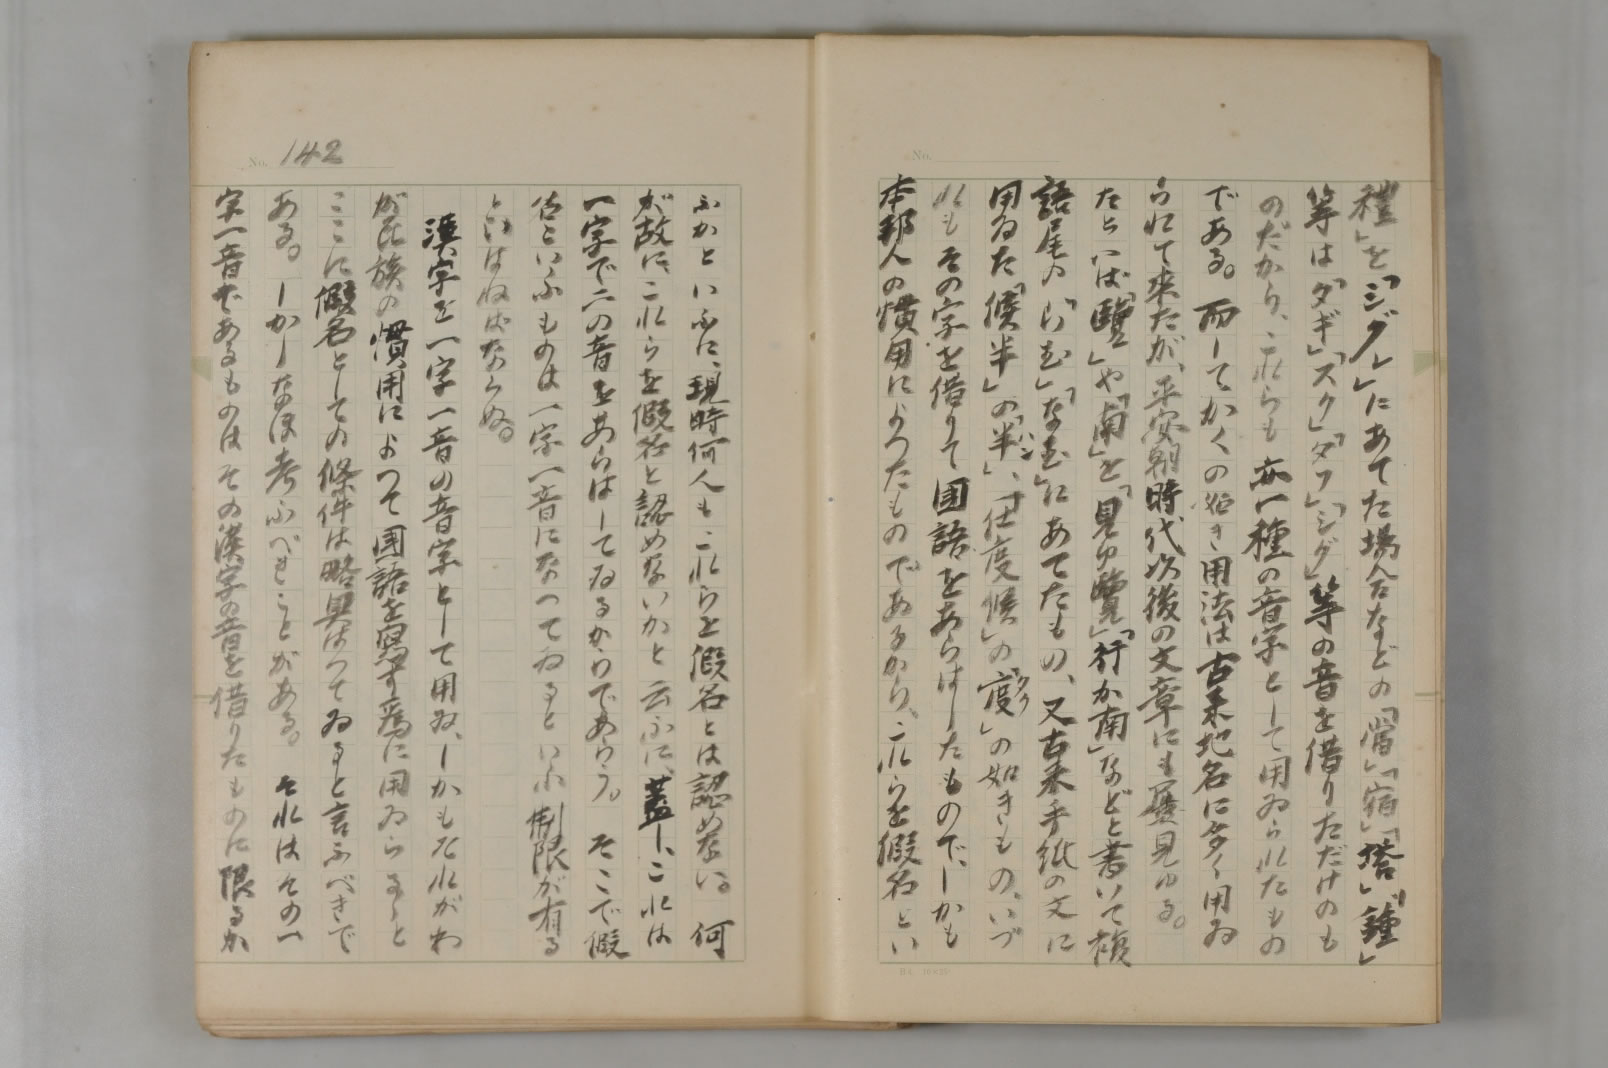 No.
禮」を「ジグ」にあてた場合などの「當」「宿」「塔」「鐘」
等は「タギ」「スク」「タフ」「シグ」等の音を借りただけのも
のだから、これらも亦一種の音字として用ゐられたもの
である。而してかくの如き用法は古来地名に多く用ゐ
られて来たが、平安朝時代以後の文章にも屡見ゆる。
たとへば「覽」や「南」を「見ゆ覽」「行か南」などと書いて複
語尾の「らむ」「なむ」にあてたもの、又古来手紙の文に
用ゐた「候半」の「半」、「仕度候」の「度」の如きもの、いづ
ハン
タク
れもその字を借りて国語をあらはしたもので、しかも
本邦人の慣用によつたものであるから、これらを假名とい
B4. 10×25
No. 142
ふかといふに、現時何人もこれらを假名とは認めない。何
が故に、これらを假名と認めないかと云ふに、蓋し、これは
一字で二の音をあらはしてゐるからであらう。そこで假
名といふものは一字一音になつてゐるといふ制限が有る
といはねばならぬ。
漢字を一字一音の音字として用ゐ、しかもそれがわ
が民族の慣用によつて国語を寫す為に用ゐらるゝと
ここに假名としての條件は略具はつてゐると言ふべきで
ある。しかしなほ考ふべきことがある。それはその一
字一音であるものはその漢字の音を借りたものに限るか